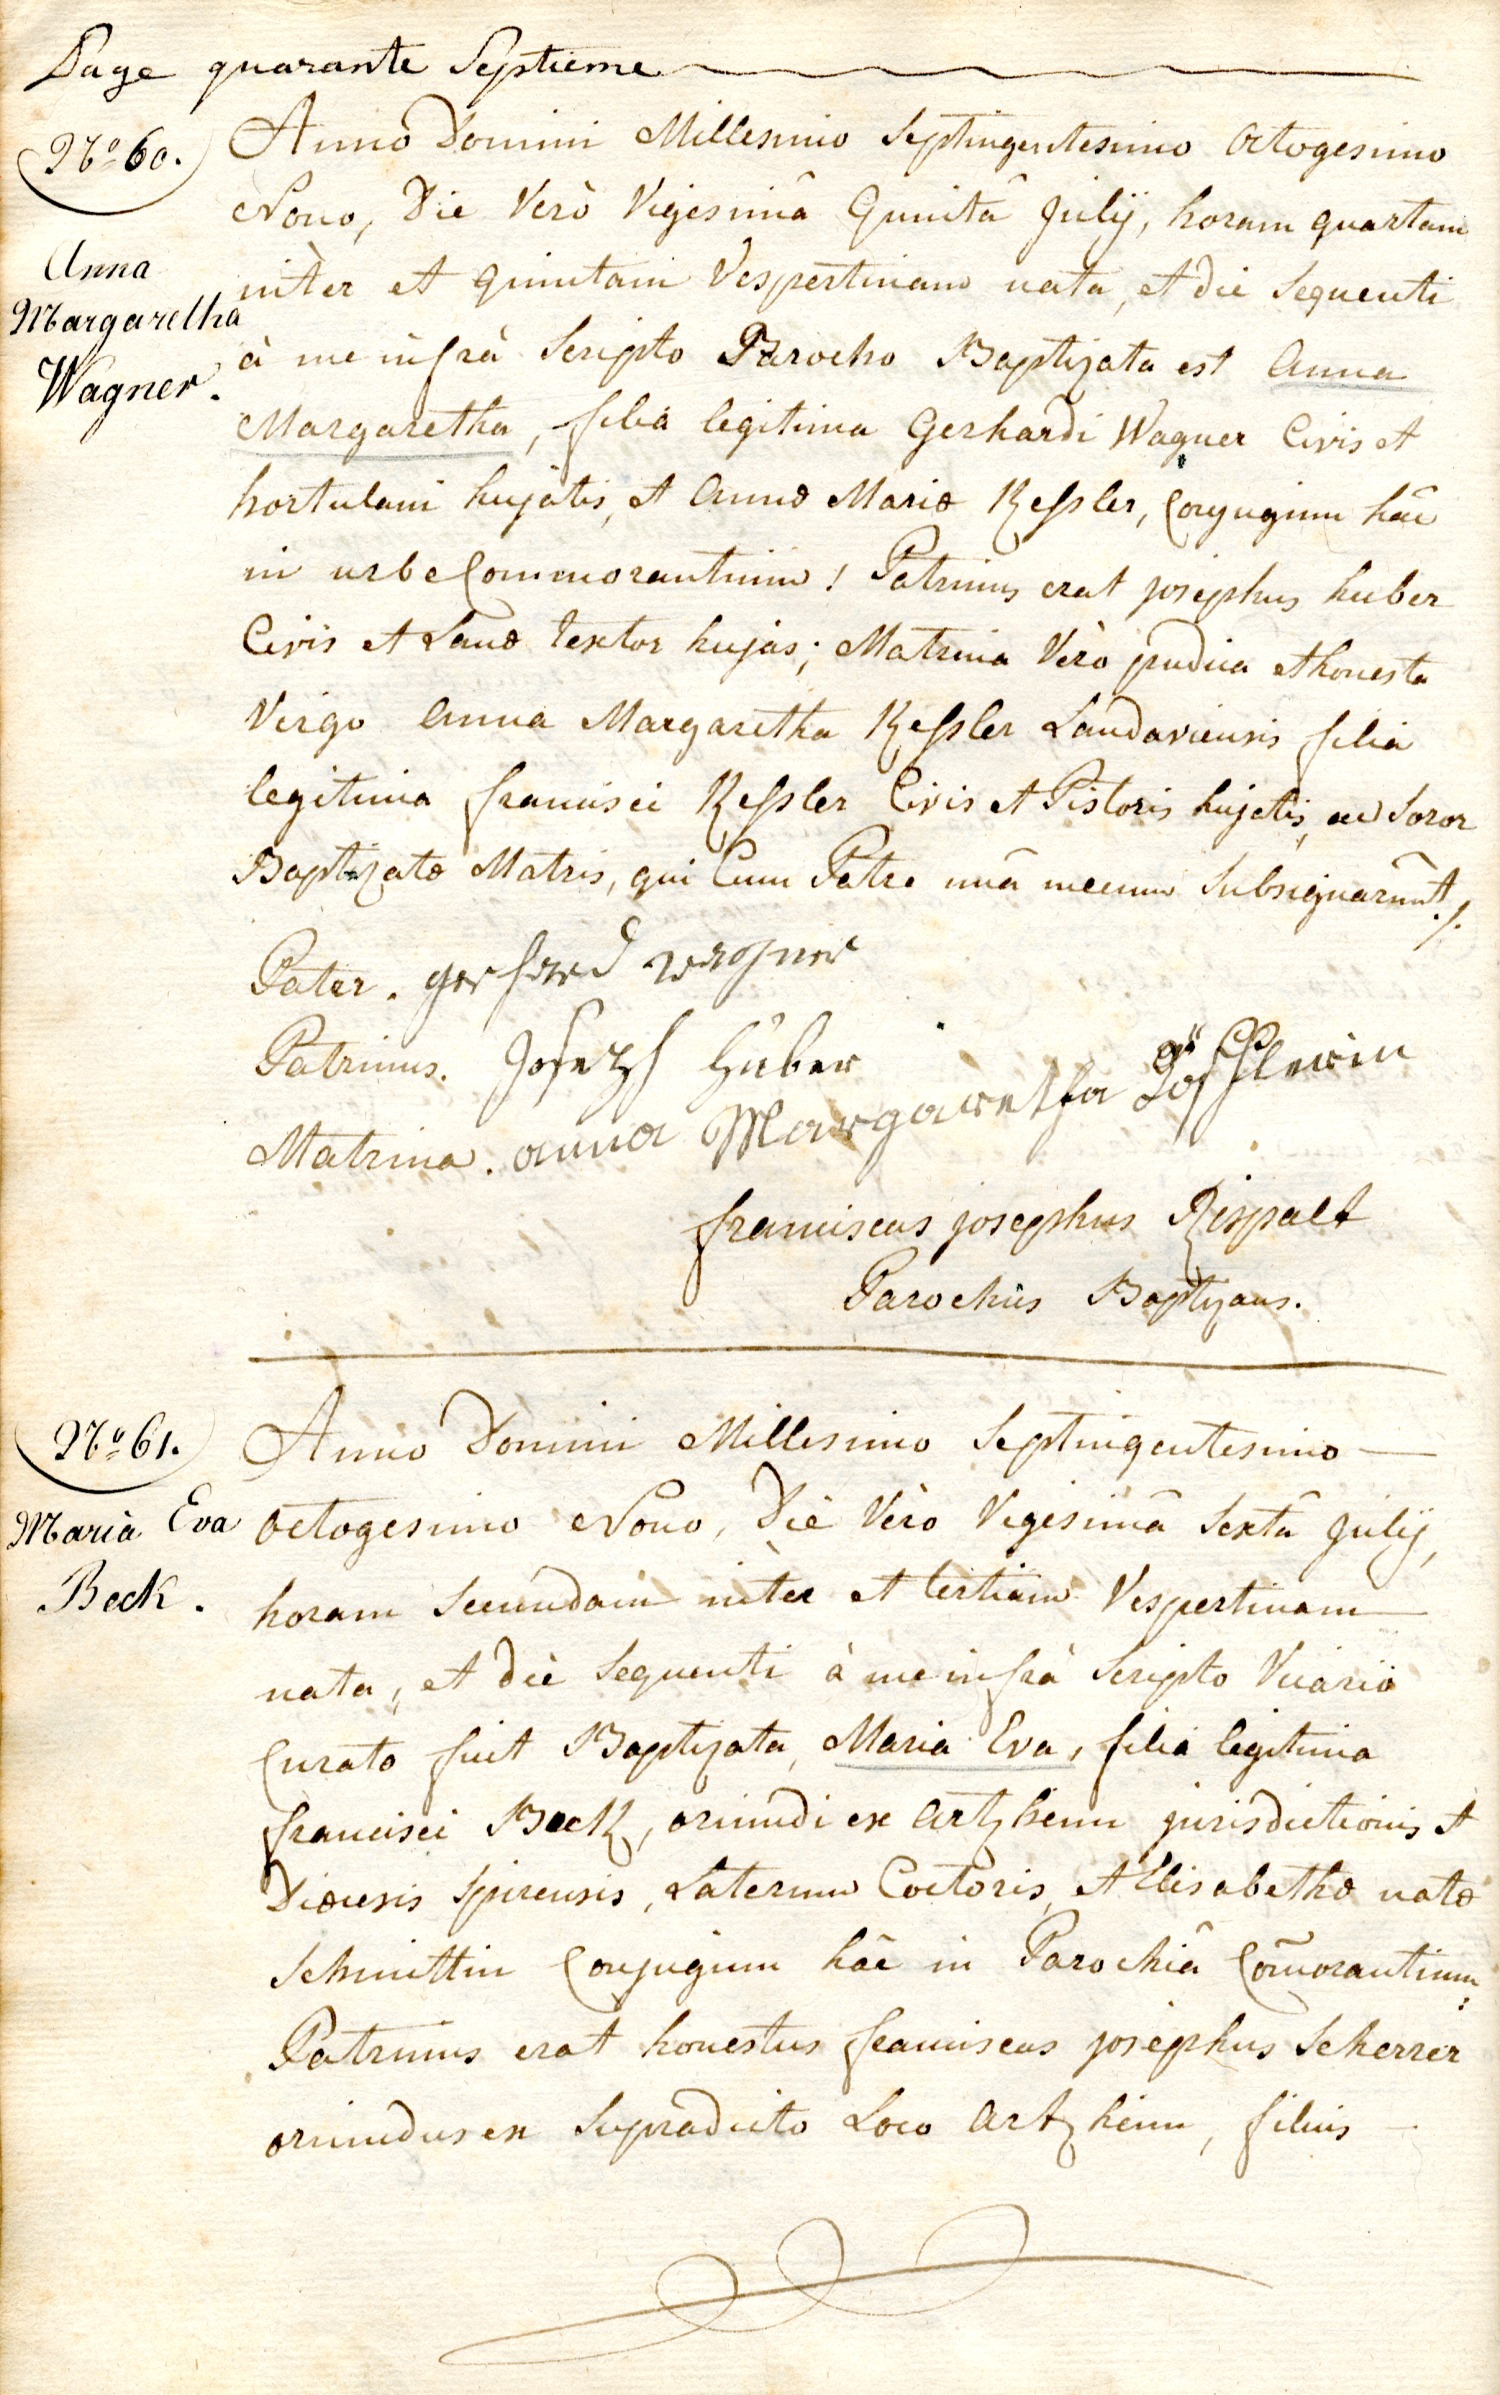 Page quarante Septieme
Nº 60.
Anna
Margaretha
Wagner.
Anno Domini Millesimo Septingentesimo Octogesimo
Nono, Die Verò Vigesimâ Quintâ Julÿ, horam quartam
inter et quintam Vespertinam nata, et die Sequenti
à me infrà Scripto Parocho Baptizata est Anna
Margaretha, filia legitima Gerhardi Wagner Civis et
hortulani hujatis, et Annæ Mariæ Keßler, Conjugum hâc
in urbe Commorantium! Patrinus erat josephus huber
Civis et Lanæ textor hujas; Matrina Vèro pudica et honesta
Virgo Anna Margaretha Keßler Landaviensis filia
legitima francisci Keßler Civis et Pistoris hujatis, ac Soror
Baptizatæ Matris, qui Cum Patre unâ mecum Subsignarûnt ./.
Pater. gerhard wagner
Patrinus. Joseph Huber
Matrina. anna Margaretha
franciscus josephus Rispalt
Parochus Baptizans.
Nº 61.
Maria Eva
Beck.
Anno Domini Millesimo Septingentesimo
Octogesimo Nono, Die Vèro Vigesimâ Sextâ Julÿ,
horam Secundam inter et tertiam Vespertinam
nata, et die Sequenti à me infrà Scripto Vicario
Curato fuit Baptizata, Maria Eva, filia legitima
francisci Beck, oriundi ex Artzheim jurisdictionis et
Diœcesis Spirensis, Laterum Coctoris, et Elisabethæ natæ
Schmittin Conjugum hâc in Parochiâ Com̃orantium;
Patrinus erat honestus franciscus josephus Scherrer
oriundus ex Supradicto Loco Artzheim, filius